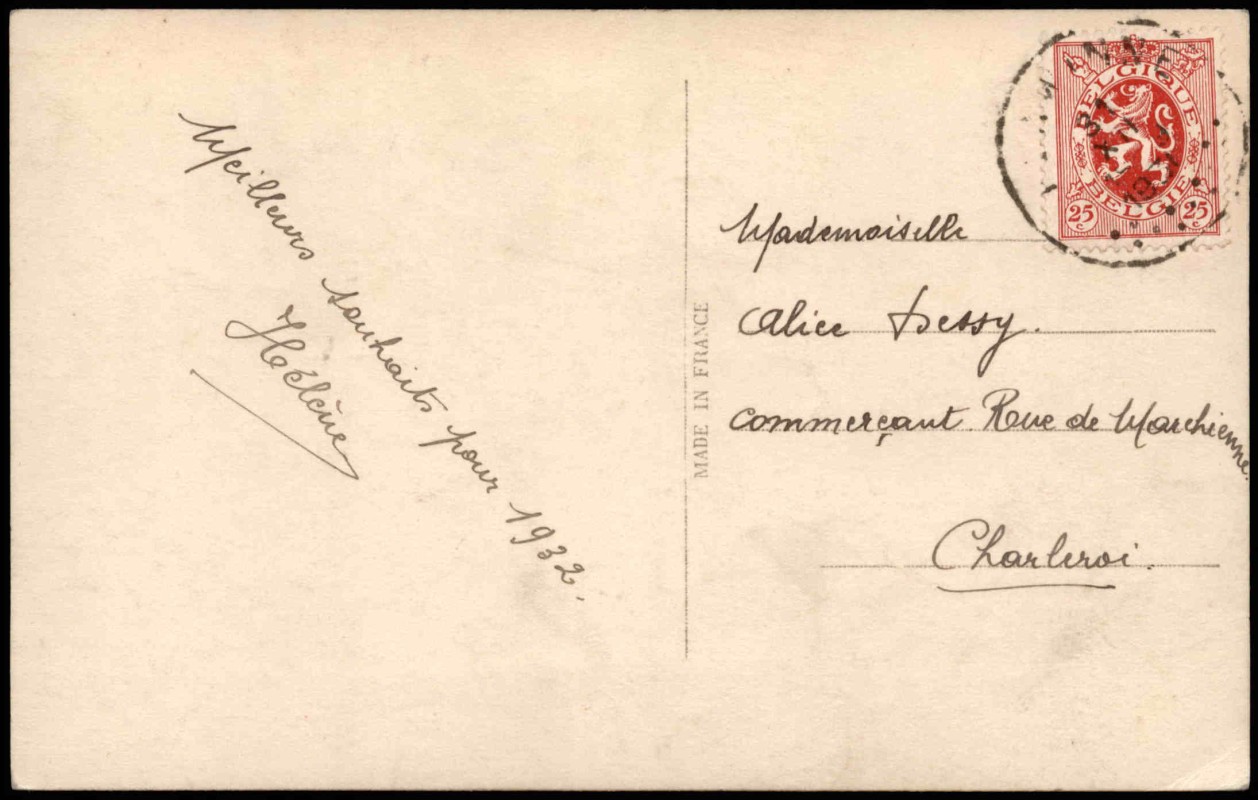 Meilleurs souhaits pour 1932.
Hélène
MADE IN FRANCE
BELGIQUE
BELGIË
25 c 25 c
Mademoiselle
Alice Dessy.
commerçant Rue de Marchienne.
Charleroi.